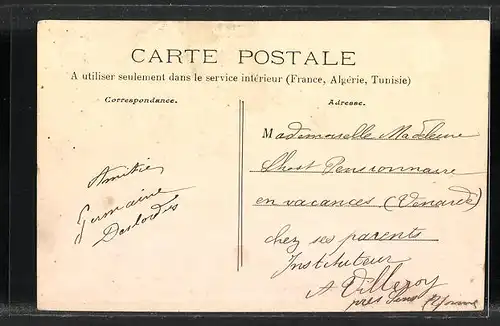 CARTE POSTALE
A utiliser seulement dans le service intérieur (France, Algérie, Tunisie)
Correspondance.
Adresse.
Amitié
Germaine
Mademoiselle Madeleine
Pensionnaire
en vacances
chez ses parents
Instituteur
A Villeroy
près Sens (Yonne)